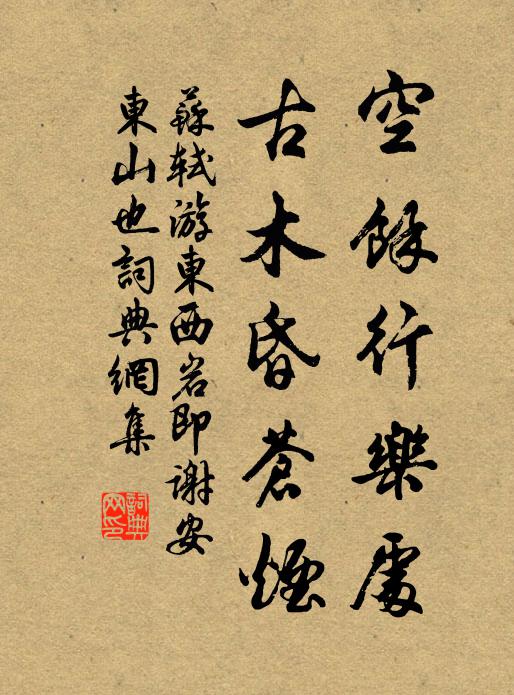 空餘行樂處
古木昏蒼煙
蘇軾游東西岩即謝安
東山也詞典網集
詞典网印